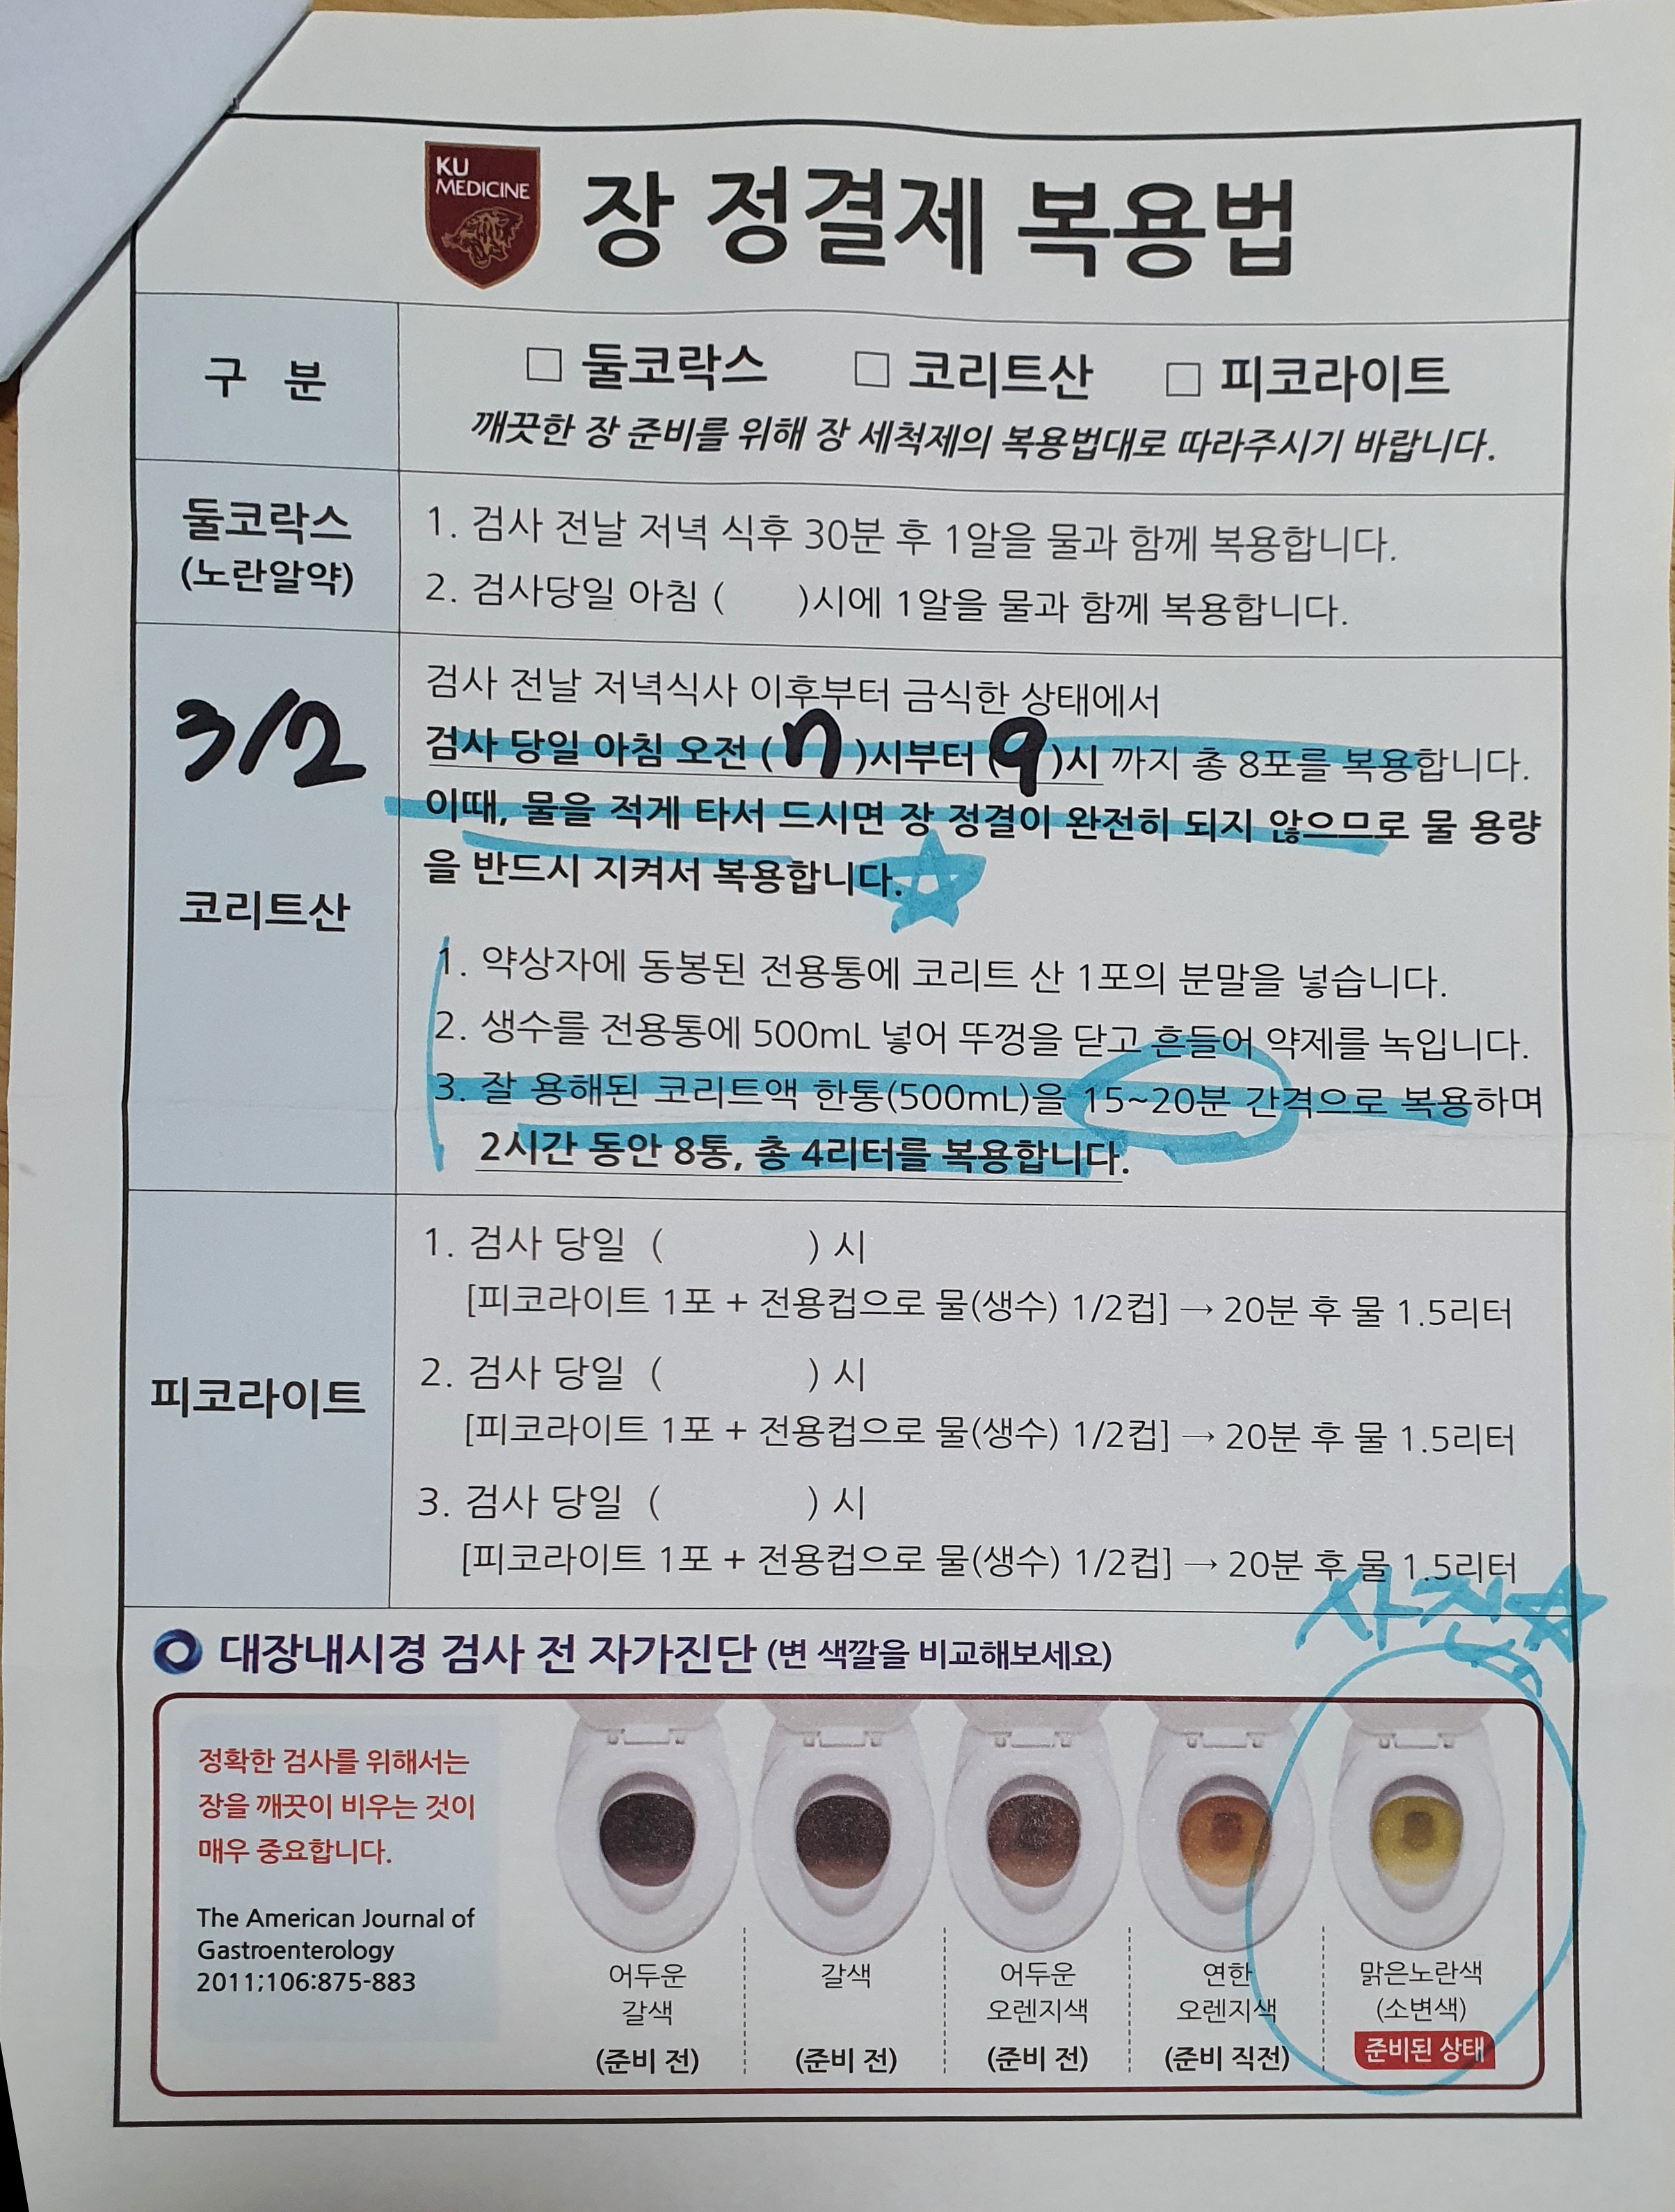 KU
MEDICINE
장 정결제 복용법
구 분
□ 둘코락스 □ 코리트산 □ 피코라이트
깨끗한 장 준비를 위해 장 세척제의 복용법대로 따라주시기 바랍니다.
둘코락스
(노란알약)
1. 검사 전날 저녁 식후 30분 후 1알을 물과 함께 복용합니다.
2. 검사당일 아침 ( )시에 1알을 물과 함께 복용합니다.
3/2
코리트산
검사 전날 저녁식사 이후부터 금식한 상태에서
검사 당일 아침 오전 (7)시부터 (9)시 까지 총 8포를 복용합니다.
이때, 물을 적게 타서 드시면 장 정결이 완전히 되지 않으므로 물 용량
을 반드시 지켜서 복용합니다.
1. 약상자에 동봉된 전용통에 코리트 산 1포의 분말을 넣습니다.
2. 생수를 전용통에 500mL 넣어 뚜껑을 닫고 흔들어 약제를 녹입니다.
3. 잘 용해된 코리트액 한통(500mL)을 15~20분 간격으로 복용하며
2시간 동안 8통, 총 4리터를 복용합니다.
피코라이트
1. 검사 당일 ( ) 시
[피코라이트 1포 + 전용컵으로 물(생수) 1/2컵] → 20분 후 물 1.5리터
2. 검사 당일 ( ) 시
[피코라이트 1포 + 전용컵으로 물(생수) 1/2컵] → 20분 후 물 1.5리터
3. 검사 당일 ( ) 시
[피코라이트 1포 + 전용컵으로 물(생수) 1/2컵] → 20분 후 물 1.5리터
사진☆
대장내시경 검사 전 자가진단 (변 색깔을 비교해보세요)
정확한 검사를 위해서는
장을 깨끗이 비우는 것이
매우 중요합니다.
The American Journal of
Gastroenterology
2011;106:875-883
어두운
갈색
(준비 전)
갈색
(준비 전)
어두운
오렌지색
(준비 전)
연한
오렌지색
(준비 직전)
맑은노란색
(소변색)
준비된 상태